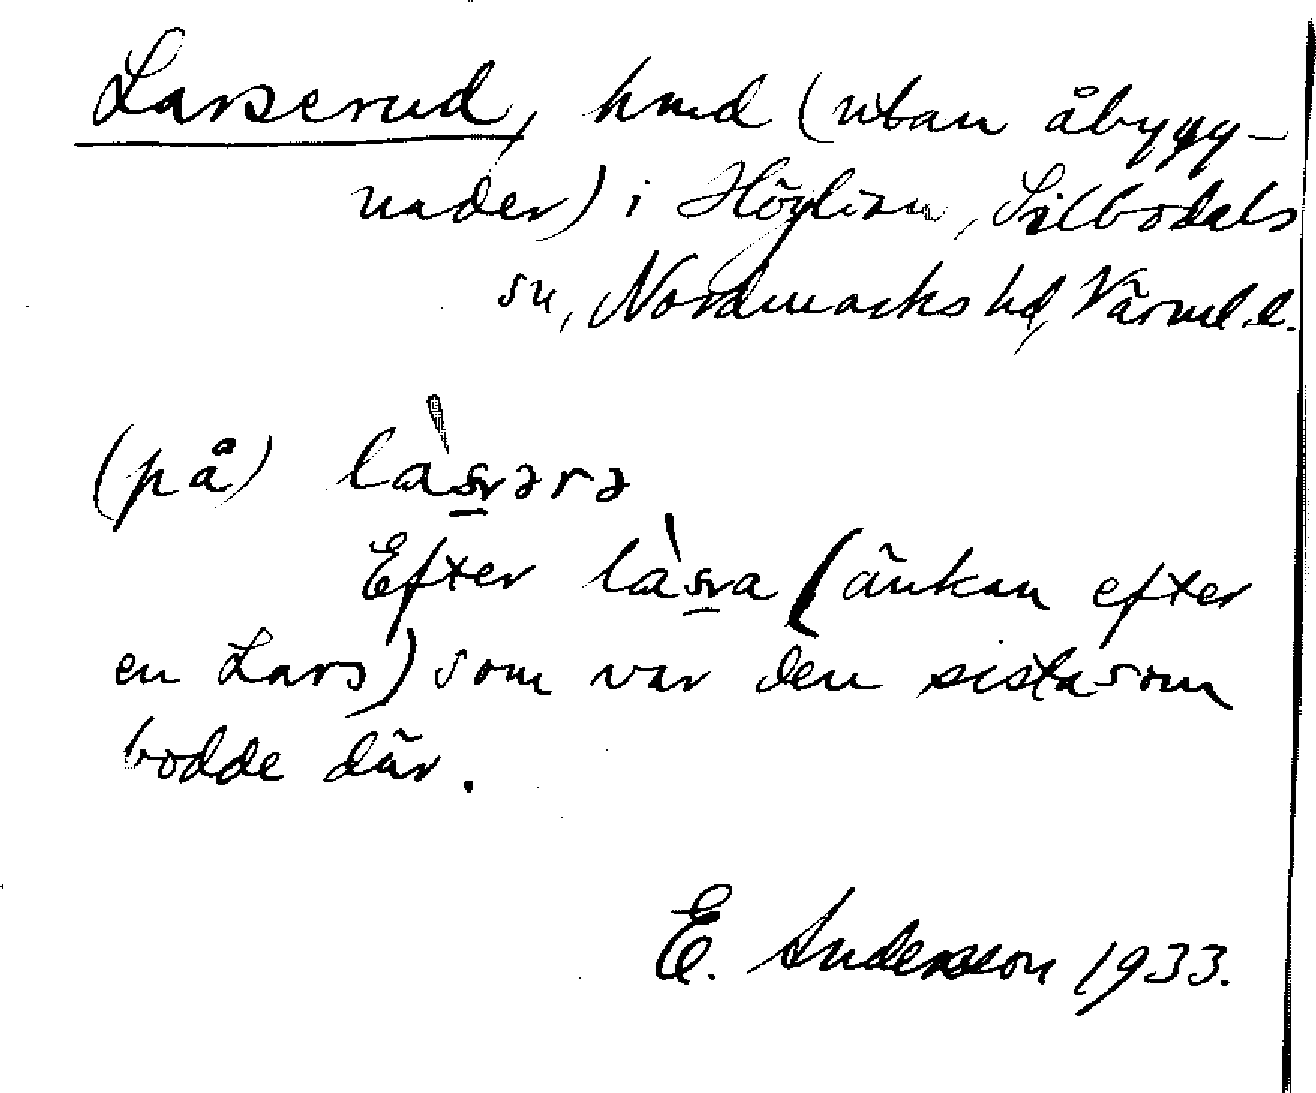 Larserud, hmd (utan åbygg-
nader) i Höglian, Silbodals
sn, Nordmarks hd, Värml. l.
(på) la`srərə
Efter la`sra (änkan efter
en Lars) som var den sista som
bodde där.
E. Andersson 1933.